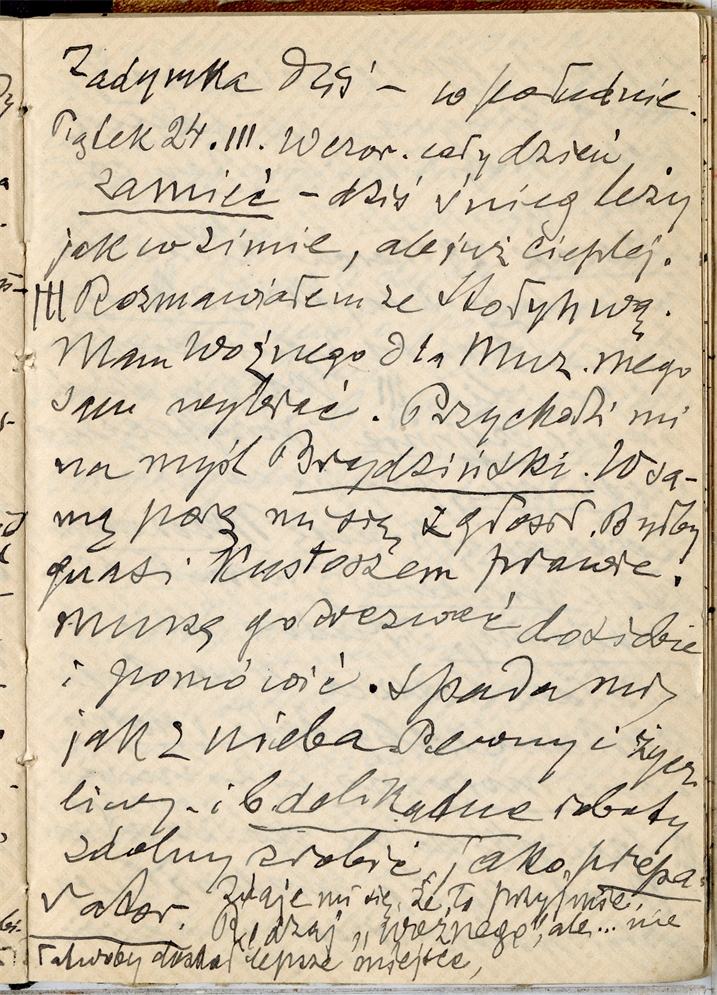 Zadymka dziś – w południe.
Piątek 24.III. Wczor. cały dzień
zamieć – dziś śnieg leży
jak w zimie, ale już cieplej.
Rozmawiałem ze Stołyhwą.
Mam Woźnego dla Muz. mego
sam wybrać. Przychodzi mi
na myśl Brydziński. W sa-
mą porę mi się zgłosił. Byłby
quasi Kustoszem prawie.
Muszę go wezwać do siebie
i pomówić. Spada mi
jak z nieba. Pewny i życz
liwy. i b. delikatne roboty
zdolny zrobić, jako prepa-
rator. Zdaje mi się, że to przyjmie.
Rodzaj „woźnego", ale... nie
łatwoby dostał lepsze miejsce,